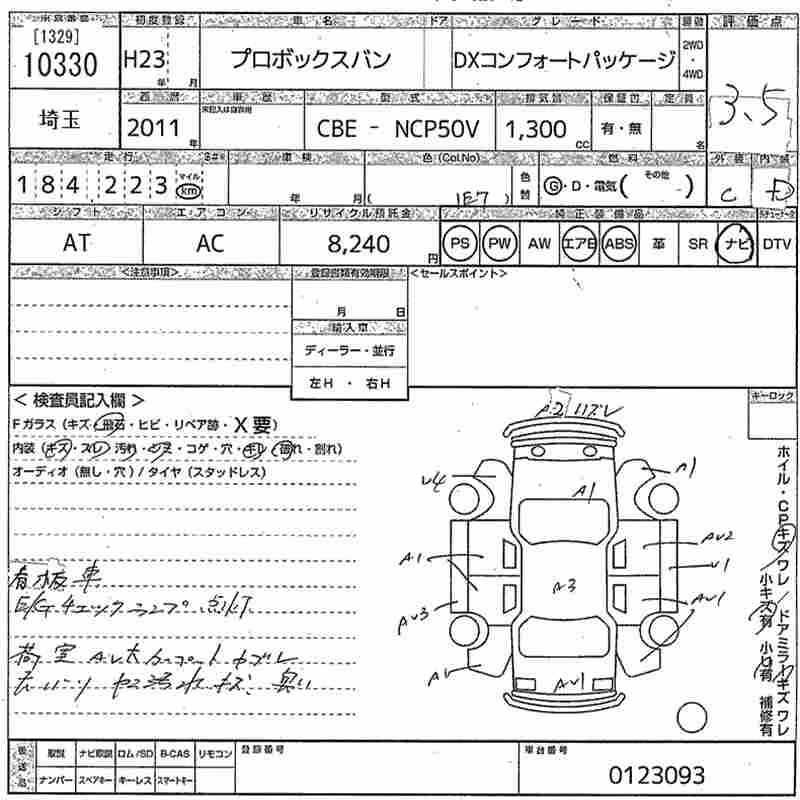 [1329]
10330
初度登録
車名
ドア
グレード
評価点
H23
年
月
プロボックスバン
DXコンフォートパッケージ
2WD
・
4WD
3.5
埼玉
西暦
車歴
型式
排気量
保証書
定員
2011
年
CBE - NCP50V
1,300
CC
有・無
名
走行
車検
色(Col.No)
燃料
外装
内装
184,223
マイル
km
年
月
(
1E7
)
色替
G・D・電気(
その他
)
C
D
シフト
エアコン
リサイクル預託金
純正装備品
AT
AC
8,240
円
PS
PW
AW
エアB
ABS
革
SR
ナビ
DTV
<注意事項>
登録書類有効期限
<セールスポイント>
月
日
輸入車
ディーラー・並行
左H ・ 右H
< 検査員記入欄 >
Fガラス(キズ・飛石・ヒビ・リペア跡・X要)
内装(キズ・スレ・汚れ・シミ・コゲ・穴・キレ・割れ)
オーディオ(無し・穴)/タイヤ(スタッドレス)
看板車
E/Gチェックランプ点灯
荷室
キーロック
ホイル・CPキズワレ/ドアミラーキズワレ
小キズ有 小凹有 補修有
A2
A1
A1
A1
AU2
U1
A3
AU3
AU1
AU
AU1
後送品
取説
ナビ取説
ロム/SD
B-CAS
リモコン
登録番号
車台番号
ナンバー
スペアキー
キーレス
スマートキー
0123093